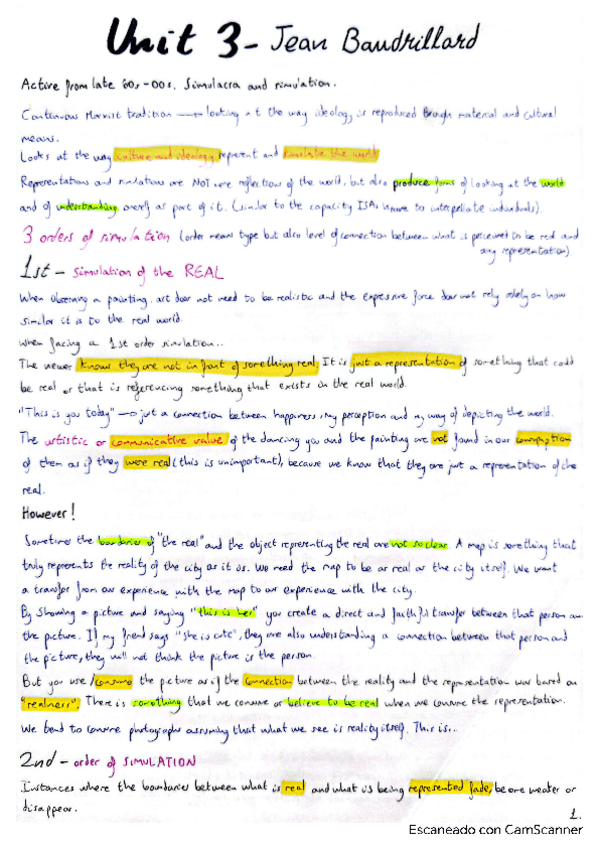 Unit 3 - Jean Baudrillard
Active from late 60s-00s. Simulacra and simulation.
Continuous Marxist tradition → looking at the way ideology is reproduced through material and cultural
means.
Looks at the way culture and ideology represent and simulate the world
Representations and simulations are NOT mere reflections of the world, but also produce forms of looking at the world
and of understanding oneself as part of it. (similar to the capacity ISAs have to interpellate individuals).
3 orders of simulation (order means type but also level of connection between what is perceived to be real and
any representation)
1st - Simulation of the REAL
When observing a painting, art does not need to be realistic and the expressive force does not rely solely on how
similar it is to the real world.
When facing a 1st order simulation..
The viewer knows they are not in front of something real. It is just a representation of something that could
be real or that is referencing something that exists in the real world.
"This is you today" → just a connection between happiness, my perception and my way of depicting the world.
The artistic or communicative value of the dancing you and the painting are not found in our consumption
of them as if they were real (this is unimportant), because we know that they are just a representation of the
real.
However!
Sometimes the boundaries of "the real" and the object representing the real are not so clear. A map is something that
truly represents the reality of the city as it is. We need the map to be as real as the city itself. We want
a transfer from our experience with the map to our experience with the city.
By showing a picture and saying "this is her" you create a direct and faithful transfer between that person and
the picture. If my friend says "she is cute", they are also understanding a connection between that person and
the picture, they will not think the picture is the person.
But you use/consume the picture as if the connection between the reality and the representation was based on
"realness". There is something that we consume or believe to be real when we consume the representation.
We tend to consume photographs assuming that what we see is reality itself. This is..
2nd - order of SIMULATION
Instances where the boundaries between what is real and what is being represented fade, become weaker or
disappear.
1.
Escaneado con CamScanner